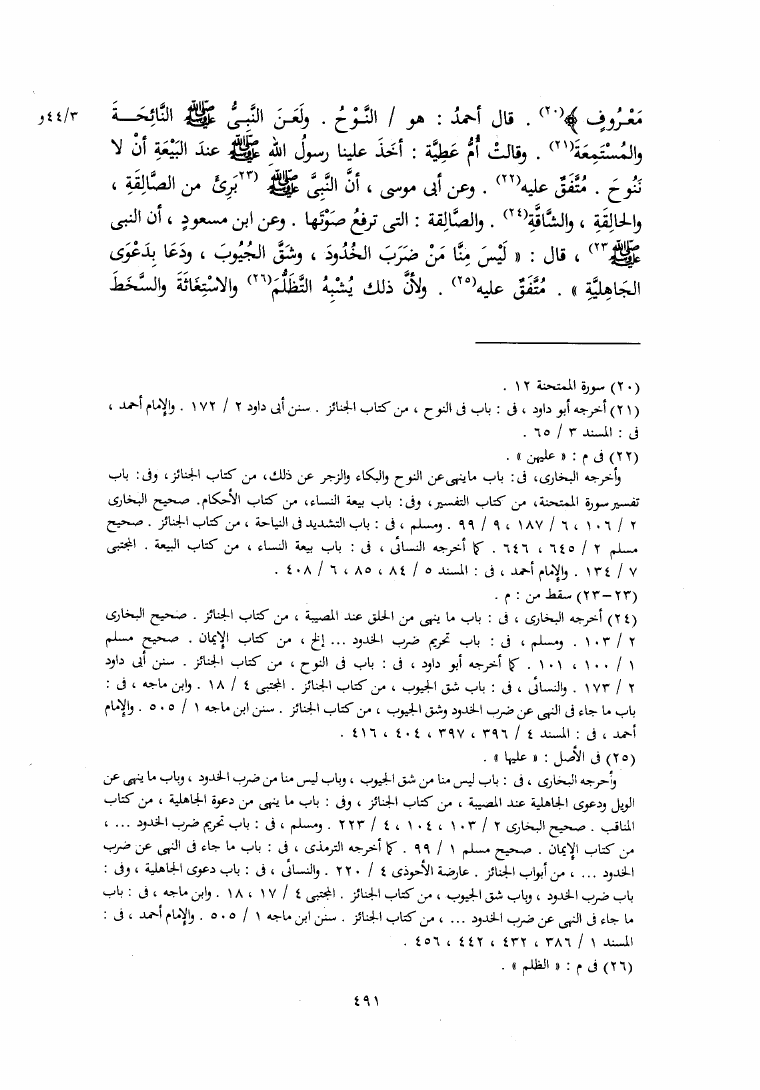 مَعْرُوفٍ ﴾(٢٠) . قال أحمدُ : هو / النَّوْحُ . ولَعَنَ النَّبِىُّ ﷺ النَّائِحَــةَ ٤٤/٣و
والمُسْتَمِعَةَ(٢١) . وقالتْ أُمُّ عَطِيَّة : أخَذَ علينا رسولُ اللهِ ﷺ عندَ البَيْعَةِ أنْ لا
نَنُوحَ . مُتَّفَقٌ عليه(٢٢) . وعن أبى موسى ، أنَّ النَّبِىَّ ﷺ (٢٣بَرِئَ من الصَّالِقَةِ ،
والحالِقَةِ ، والشَّاقَّةِ(٢٤) . والصَّالِقة : التى ترفعُ صَوْتَها . وعن ابن مسعودٍ ، أن النبى
ﷺ٢٣) ، قال : « لَيْسَ مِنَّا مَنْ ضَرَبَ الخُدُودَ ، وشَقَّ الجُيُوبَ ، ودَعَا بِدَعْوَى
الجَاهِليَّةِ » . مُتَّفَقٌ عليه(٢٥) . ولأنَّ ذلك يُشْبِهُ التَّظَلُّمَ(٢٦) والاسْتِغَاثَةَ والسَّخَطَ
(٢٠) سورة الممتحنة ١٢ .
(٢١) أخرجه أبو داود ، فى : باب فى النوح ، من كتاب الجنائز . سنن أبى داود ٢ / ١٧٢ . والإمام أحمد ،
فى : المسند ٣ / ٦٥ .
(٢٢) فى م : « عليهن » .
وأخرجه البخارى، فى: باب ماينهى عن النوح والبكاء والزجر عن ذلك، من كتاب الجنائز، وفى: باب
تفسير سورة الممتحنة، من كتاب التفسير، وفى: باب بيعة النساء، من كتاب الأحكام. صحيح البخارى
٢ / ١٠٦ ، ٦ / ١٨٧ ، ٩ / ٩٩ . ومسلم ، فى : باب التشديد فى النياحة ، من كتاب الجنائز . صحيح
مسلم ٢ / ٦٤٥ ، ٦٤٦ . كما أخرجه النسائى ، فى : باب بيعة النساء ، من كتاب البيعة . المجتبى
٧ / ١٣٤ . والإمام أحمد ، فى : المسند ٥ / ٨٤ ، ٨٥ ، ٦ / ٤٠٨ .
(٢٣-٢٣) سقط من : م .
(٢٤) أخرجه البخارى ، فى : باب ما ينهى من الحلق عند المصيبة ، من كتاب الجنائز . صحيح البخارى
٢ / ١٠٣ . ومسلم ، فى : باب تحريم ضرب الخدود ... إلخ ، من كتاب الإيمان . صحيح مسلم
١ / ١٠٠ ، ١٠١ . كما أخرجه أبو داود ، فى : باب فى النوح ، من كتاب الجنائز . سنن أبى داود
٢ / ١٧٣ . والنسائى ، فى : باب شق الجيوب ، من كتاب الجنائز . المجتبى ٤ / ١٨ . وابن ماجه ، فى :
باب ما جاء فى النهى عن ضرب الخدود وشق الجيوب ، من كتاب الجنائز . سنن ابن ماجه ١ / ٥٠٥ . والإمام
أحمد ، فى : المسند ٤ / ٣٩٦ ، ٣٩٧ ، ٤٠٤ ، ٤١٦ .
(٢٥) فى الأصل : « عليها » .
وأخرجه البخارى ، فى : باب ليس منا من شق الجيوب ، وباب ليس منا من ضرب الخدود ، وباب ما ينهى عن
الويل ودعوى الجاهلية عند المصيبة ، من كتاب الجنائز ، وفى : باب ما ينهى من دعوة الجاهلية ، من كتاب
المناقب . صحيح البخارى ٢ / ١٠٣ ، ١٠٤ ، ٤ / ٢٢٣ . ومسلم ، فى : باب تحريم ضرب الخدود ... ،
من كتاب الإيمان . صحيح مسلم ١ / ٩٩ . كما أخرجه الترمذى ، فى : باب ما جاء فى النهى عن ضرب
الخدود ... ، من أبواب الجنائز . عارضة الأحوذى ٤ / ٢٢٠ . والنسائى ، فى : باب دعوى الجاهلية ، وفى :
باب ضرب الخدود ، وباب شق الجيوب ، من كتاب الجنائز . المجتبى ٤ / ١٧ ، ١٨ . وابن ماجه ، فى : باب
ما جاء فى النهى عن ضرب الخدود ... ، من كتاب الجنائز . سنن ابن ماجه ١ / ٥٠٥ . والإمام أحمد ، فى :
المسند ١ / ٣٨٦ ، ٤٣٢ ، ٤٤٢ ، ٤٥٦ .
(٢٦) فى م : « الظلم » .
٤٩١